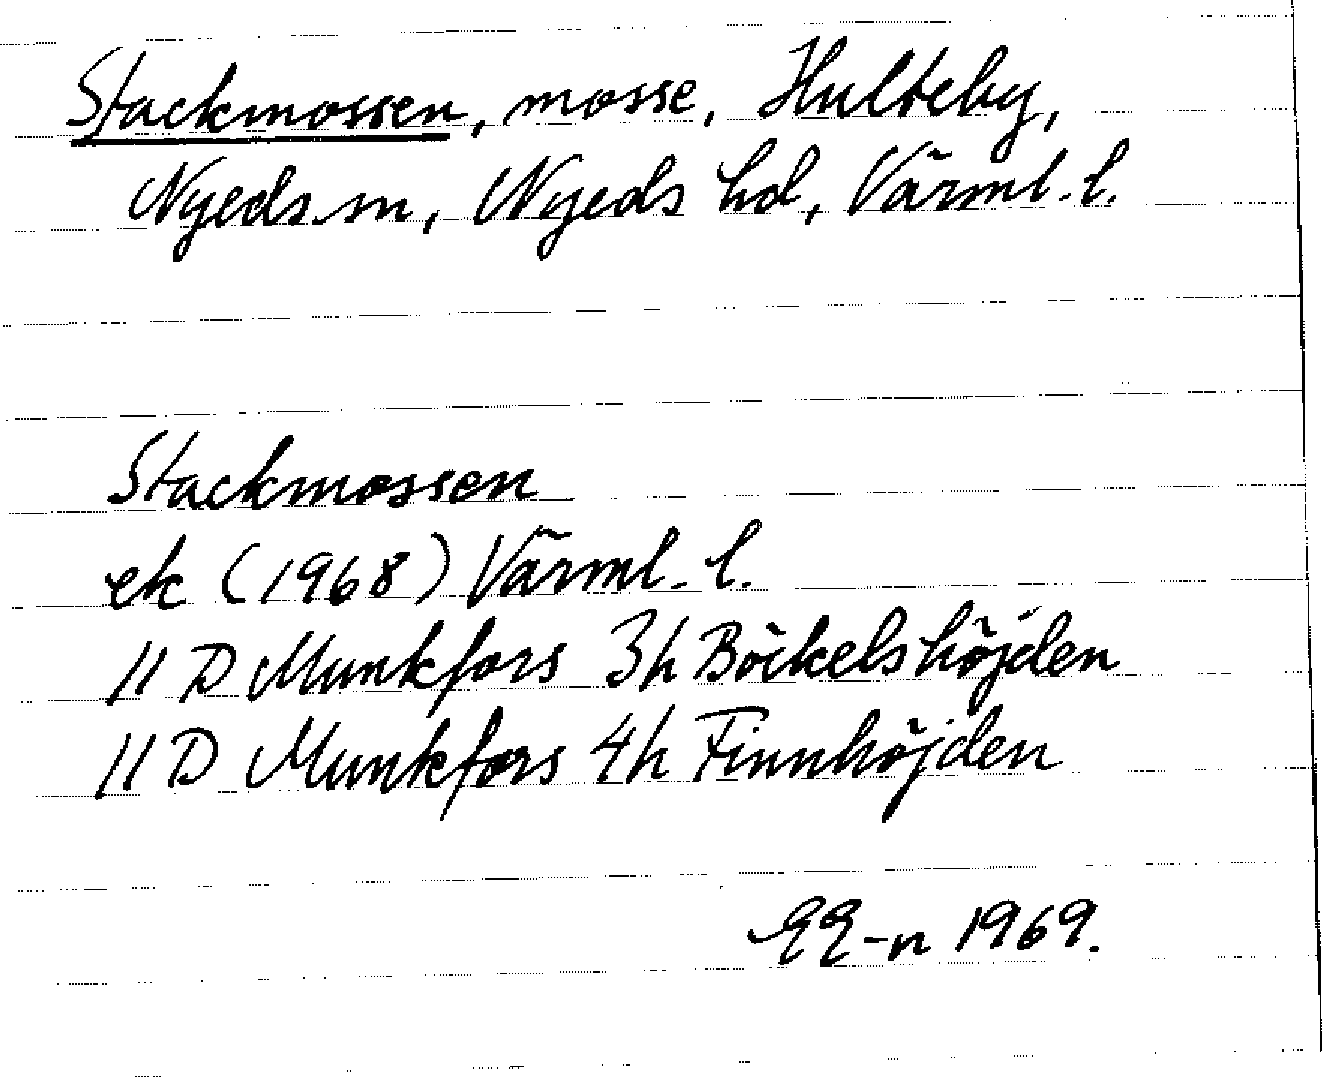 Stackmossen, mosse, Hulteby,
Nyeds sn, Nyeds hd, Värml. l.
Stackmossen
ek (1968) Värml. l.
11 D Munkfors 3h Böckelshöjden
11 D Munkfors 4h Finnhöjden
EE-n 1969.